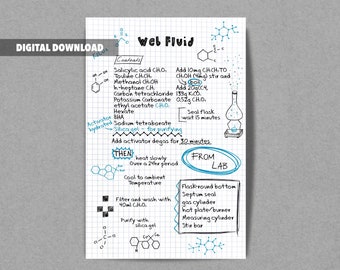 DIGITAL DOWNLOAD
Web Fluid
Contents
Salicylic acid C₇H₆O₃
Touline C₇H₈
Methanol CH₃OH
n-heptane C₇H₁₆
Carbon tetrachloride
Potassium Carbonate
ethyl acetate C₄H₈O₂
Hexate
BHA
Sodium tetraborate
Silica gel - for purifying
Activator
Add 10mg
stir and
boil
Add 20
138g K₂CO₃
0.52g
Seal flask
wait 15 minutes
Add activator degas for 30 minutes
THEN:
heat slowly
Over a 24hr period
FROM
LAB
Cool to ambient
Temperature
Filter and wash with
40ml
Purify with
silica gel
Flask-round bottom
Septum seal
gas cylinder
hot plate/burner
Measuring cylinder
Stir bar